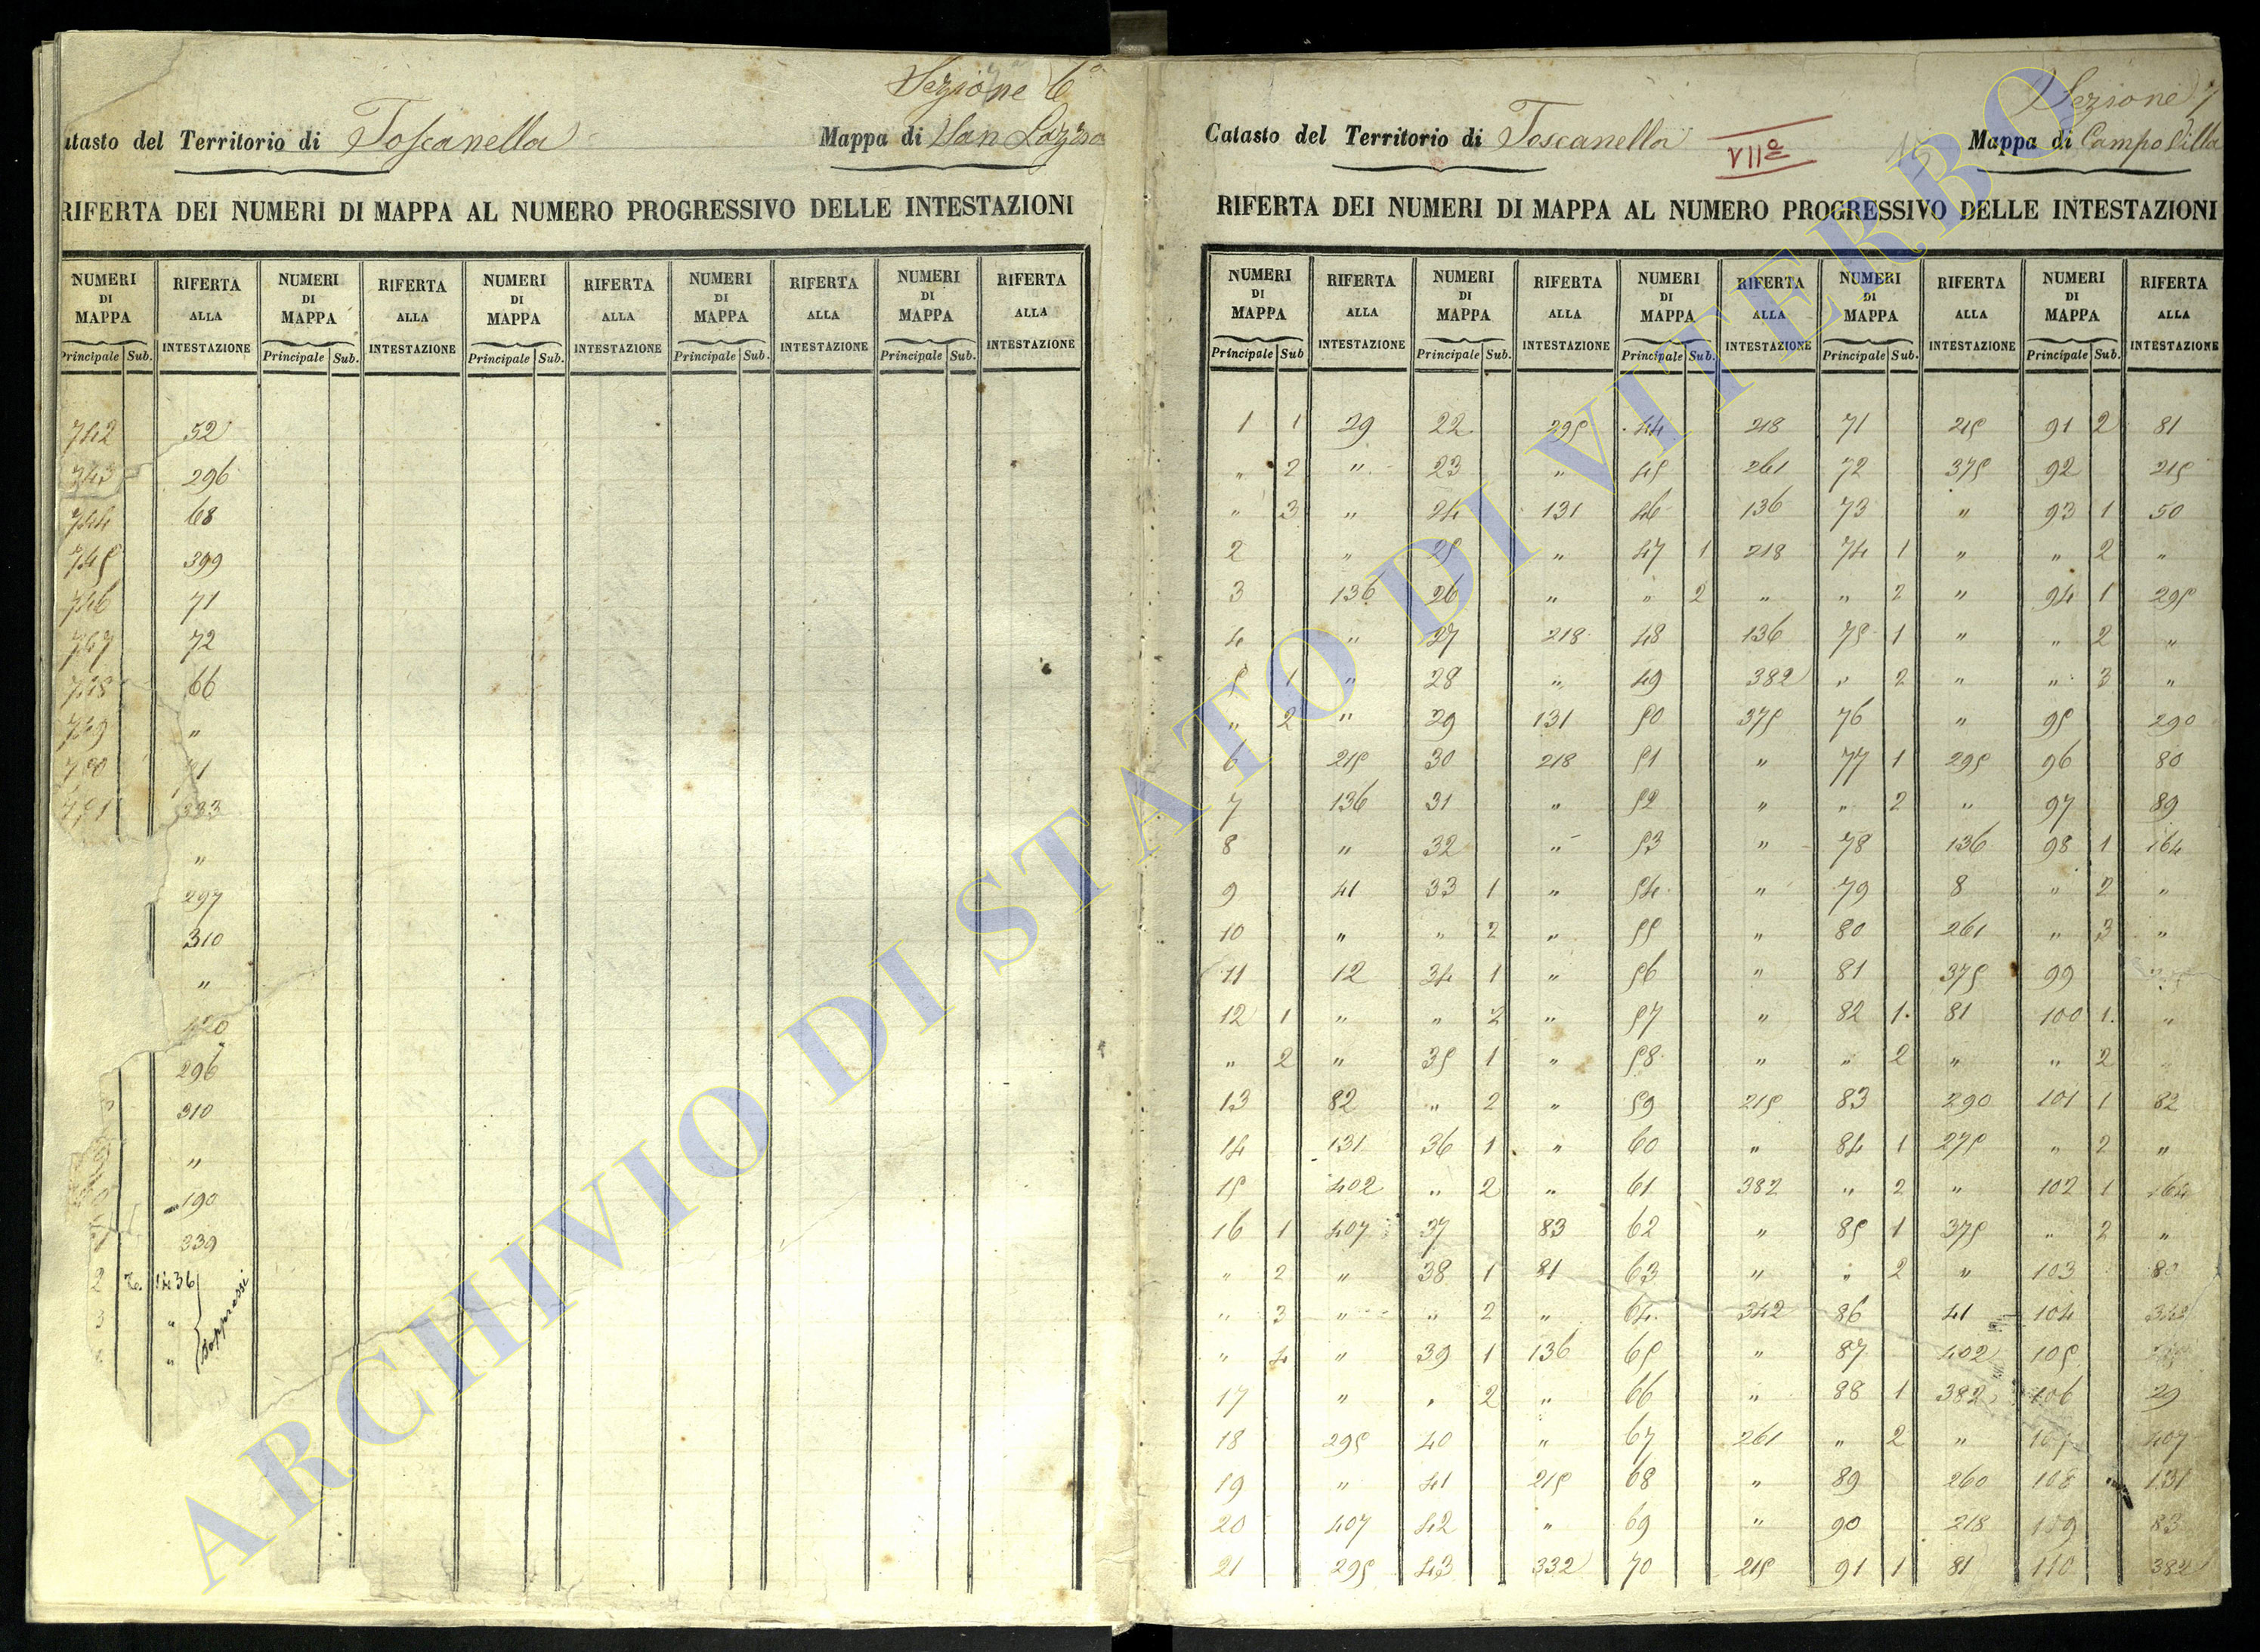 Sezione 6ª
atasto del Territorio di Toscanella Mappa di San Lazzaro
RIFERTA DEI NUMERI DI MAPPA AL NUMERO PROGRESSIVO DELLE INTESTAZIONI
NUMERI RIFERTA NUMERI RIFERTA NUMERI RIFERTA NUMERI RIFERTA NUMERI RIFERTA
DI ALLA DI ALLA DI ALLA DI ALLA DI ALLA
MAPPA INTESTAZIONE MAPPA INTESTAZIONE MAPPA INTESTAZIONE MAPPA INTESTAZIONE MAPPA INTESTAZIONE
Principale Sub. Principale Sub. Principale Sub. Principale Sub. Principale Sub.
742 52
743 296
744 68
745 399
746 71
747 72
748 66
749 "
750 71
751 333
"
297
310
"
420
296
310
"
190
339
2 1436
3 " Soppressi
"
Sezione 7
Catasto del Territorio di Toscanella VIIª Mappa di Campo Villa
RIFERTA DEI NUMERI DI MAPPA AL NUMERO PROGRESSIVO DELLE INTESTAZIONI
NUMERI RIFERTA NUMERI RIFERTA NUMERI RIFERTA NUMERI RIFERTA NUMERI RIFERTA
DI ALLA DI ALLA DI ALLA DI ALLA DI ALLA
MAPPA INTESTAZIONE MAPPA INTESTAZIONE MAPPA INTESTAZIONE MAPPA INTESTAZIONE MAPPA INTESTAZIONE
Principale Sub Principale Sub. Principale Sub. Principale Sub. Principale Sub.
1 1 29 22 295 44 218 71 215 91 2 81
" 2 " 23 " 45 261 72 375 92 215
" 3 " 24 131 46 136 73 " 93 1 50
2 " 25 " 47 1 218 74 1 " " 2 "
3 136 26 " " 2 " " 2 " 94 1 295
4 " 27 218 48 136 75 1 " " 2 "
5 1 " 28 " 49 382 " 2 " " 3 "
" 2 " 29 131 50 375 76 " 95 290
6 215 30 218 51 " 77 1 295 96 80
7 136 31 " 52 " " 2 " 97 89
8 " 32 " 53 " 78 136 98 1 164
9 41 33 1 " 54 " 79 8 " 2 "
10 " " 2 " 55 " 80 261 " 3 "
11 12 34 1 " 56 " 81 375 99 "
12 1 " " 2 " 57 " 82 1 81 100 1 "
" 2 " 35 1 " 58 " " 2 " " 2 "
13 82 " 2 " 59 215 83 290 101 1 82
14 131 36 1 " 60 " 84 1 275 " 2 "
15 402 " 2 " 61 382 " 2 " 102 1 164
16 1 407 37 83 62 " 85 1 375 " 2 "
" 2 " 38 1 81 63 " " 2 " 103 80
" 3 " " 2 " 64 342 86 41 104
" 4 " 39 1 136 65 " 87 402 105
17 " " 2 " 66 " 88 1 382 106 29
18 295 40 " 67 261 " 2 " 107 407
19 " 41 215 68 " 89 260 108 131
20 407 42 " 69 " 90 218 109 83
21 295 43 332 70 215 91 1 81 110 382
ARCHIVIO DI STATO DI VITERBO